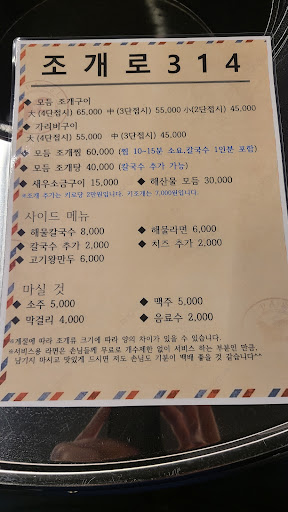 조개로314
◆ 모듬 조개구이
大 (4단접시) 65,000 中 (3단접시) 55,000 小(2단접시) 45,000
◆ 가리비구이
大 (4단접시) 55,000 中 (3단접시) 45,000
◆ 모듬 조개찜 60,000 (찜 10~15분 소요,칼국수 1인분 포함)
◆ 모듬 조개탕 40,000 (칼국수 추가 가능)
◆ 새우소금구이 15,000 ◆ 해산물 모듬 30,000
*조개 추가는 키로당 2만원입니다. 키조개는 7,000원입니다.
사이드 메뉴
◆ 해물칼국수 8,000 ◆ 해물라면 6,000
◆ 칼국수 추가 2,000 ◆ 치즈 추가 2,000
◆ 고기왕만두 6,000
마실 것
◆ 소주 5,000 ◆ 맥주 5,000
◆ 막걸리 4,000 ◆ 음료수 2,000
*계절에 따라 조개류 크기에 따라 양의 차이가 있을 수 있습니다.
*서비스용 라면은 손님들께 무료로 개수제한 없이 서비스 하는 부분인 만큼,
남기지 마시고 맛있게 드시면 저도 손님도 기분이 백배 좋을 것 같습니다^^